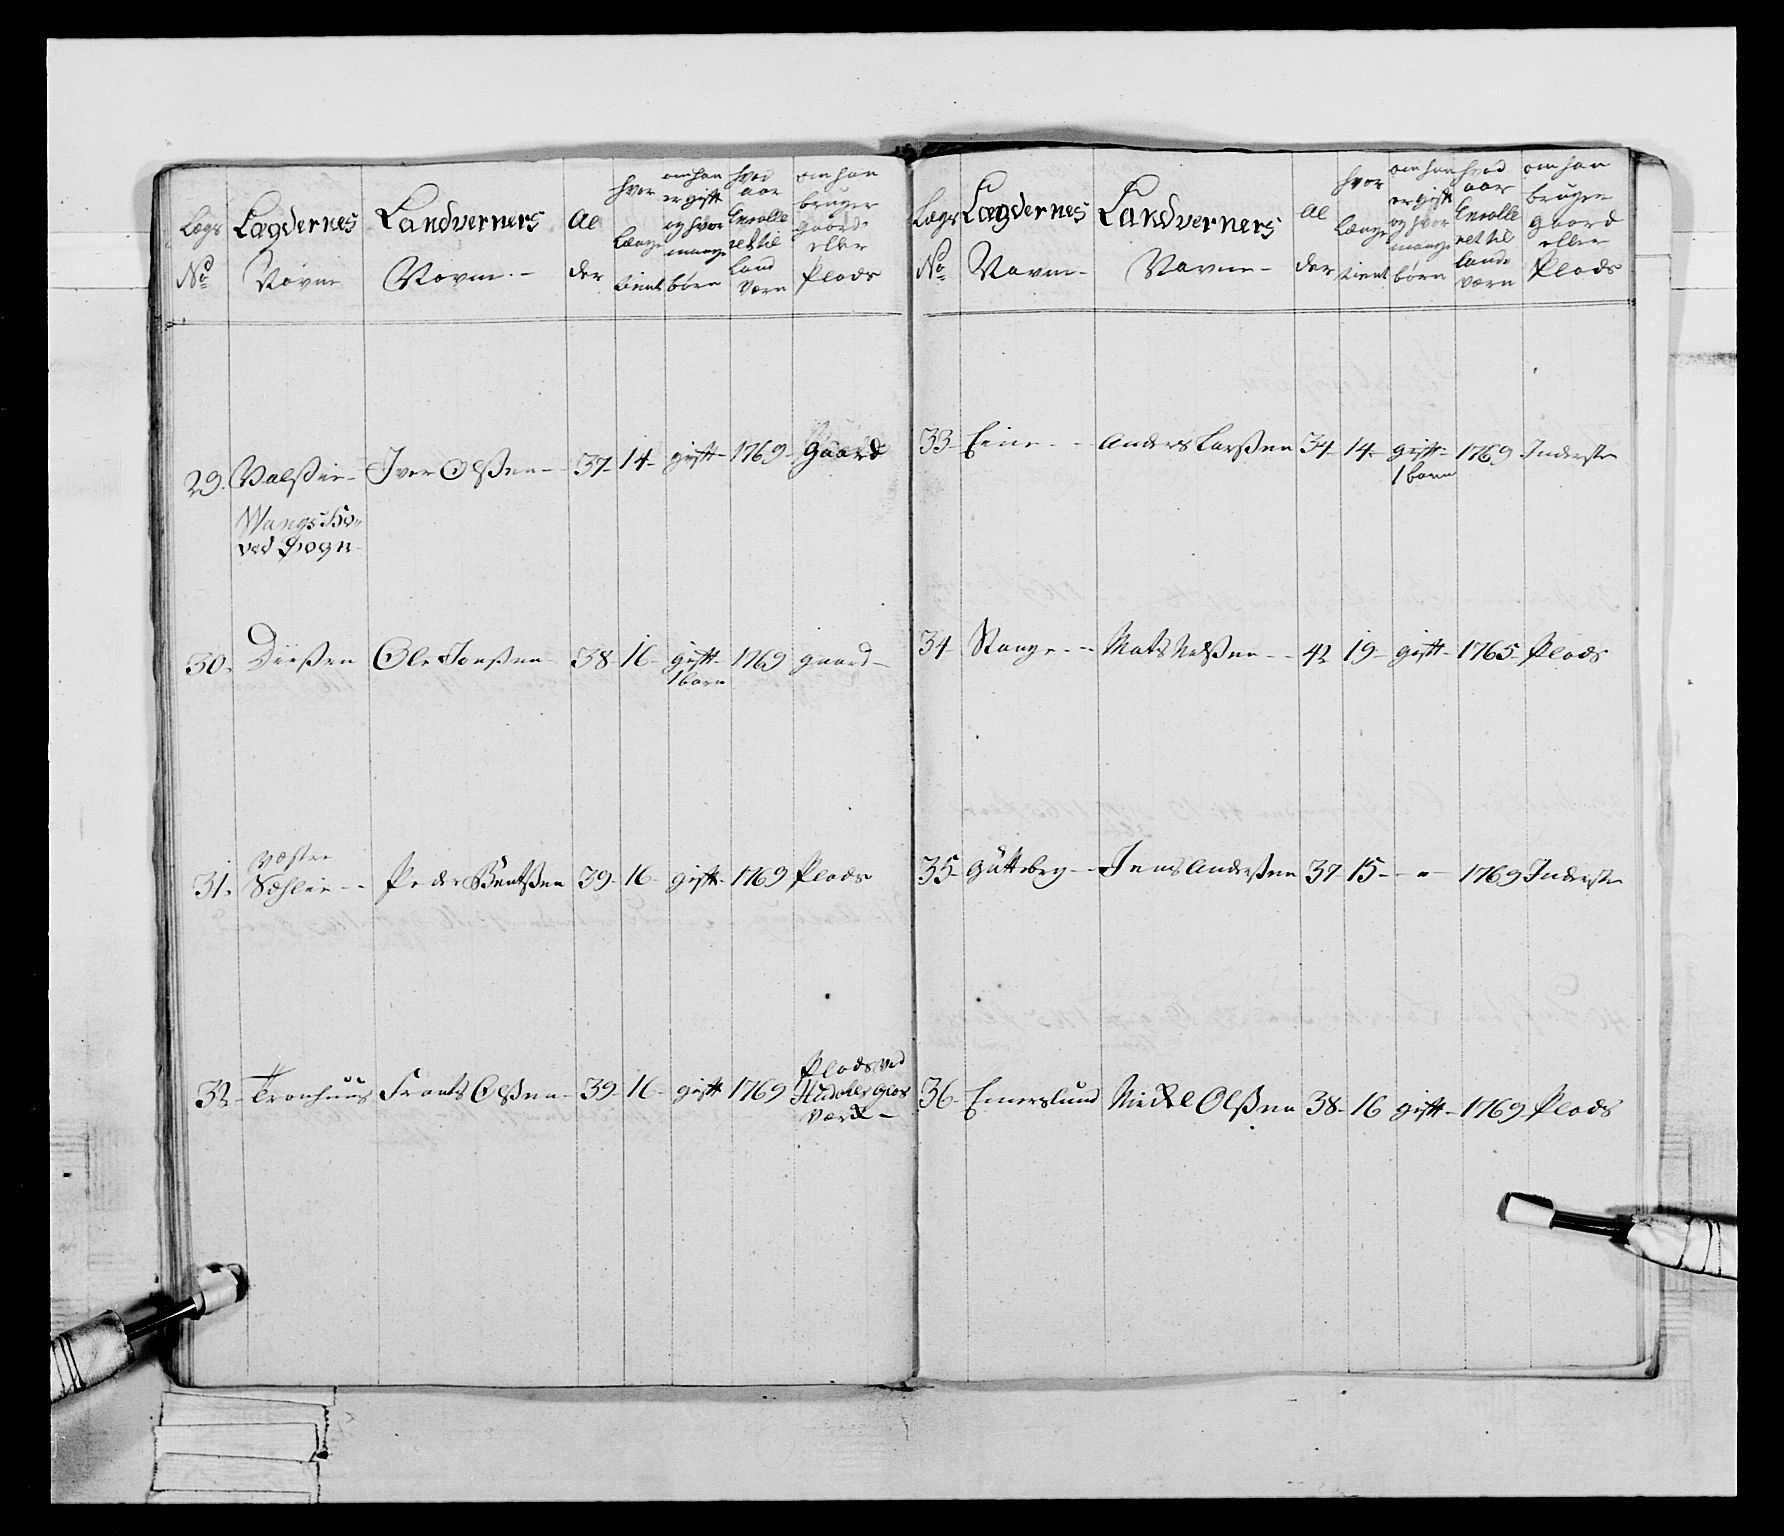 Lægs No
Lægdernes Navne
Landverners Navne
Alder
hvor Længe tient
om han er gift og hvor mange børn
hvad aar Enrolleret til Land Værn
om han bruger gaard eller Plads
29. Valsßie Iver Olßen 37 14 gift 1769 gaard
Wangs Hoved Sogn
30. Diißen Ole Jonßen 38 16 gift 1 barn 1769 gaard
31. Vestre Sæhlie Peder Bentßen 39 16 gift 1769 Plads
32 Tronhuus Frants Olßen 39 16 gift 1769 Plads ved Hudahls glas værk
Lægs No
Lægdernes Navne
Landverners Navne
Alder
hvor Længe tient
om han er gift og hvor mange børn
hvad aar Enrolleret til Lands værn
om han bruger gaard eller Plads
33 Anders Larßen 34 14 gift 1 barn 1769 Inderste
34 Stange Mats Nelßen 42 19 gift 1765 Plads
35 Gütteberg Jens Andersßen 37 15 " 1769 Inderste
36 Emerslund Nickel Olßen 38 16 gift 1769 Plads